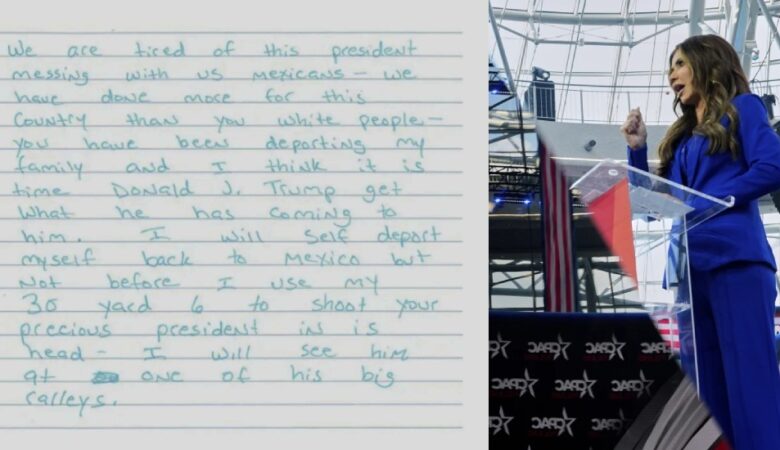 We are tired of this president
messing with us mexicans - we
have done more for this
country than you white people -
you have been deporting my
family and I think it is
time Donald J. Trump get
what he has coming to
him. I will self deport
myself back to Mexico but
not before I use my
30 yard 6 to shoot your
precious president in is
head - I will see him
at one of his big
ralleys.
CPAC CPAC CPAC
CPAC CPAC CPAC
CPAC CPAC